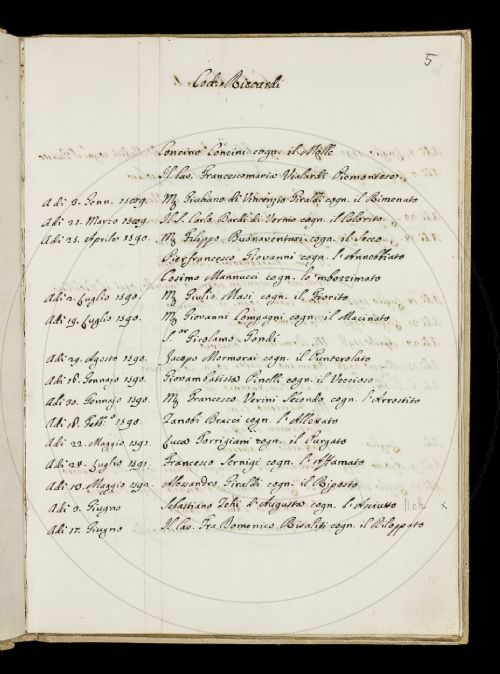 5
Cod. Riccardi
Concino Concini cogn. il Molle
Il Cav. Francescomaria Vialardi Piemontese
A di 8. Genn. 1589. Mʳ Giuliano di Vincenzio Giraldi cogn. il Rimenato
A di 21. Marzo 1589. Il S. Carlo Bardi di Vernio cogn. il Colorito
A di 25. Aprile 1590. Mʳ Filippo Buonaventuri cogn. il Secco
Pierfrancesco Giovanni cogn. l'Annebbiato
Cosimo Mannucci cogn. lo'mbozzimato
A di 2. Luglio 1590. Mʳ Giulio Masi cogn. il Fiorito
A di 19. Luglio 1590. Mʳ Giovanni Compagni cogn. il Macinato
S.ᵒʳ Girolamo Gondi
A di 29. Agosto 1590. Jacopo Mormorai cogn. il Punterolato
A di 18. Gennajo 1590. Giovambatista Pinelli cogn. il
A di 30. Gennajo 1590. Mʳ Francesco Verini Secondo cogn. l'Arrostito
A di 18. Febb.º 1590. Zanobi Bracci cogn. l'Allevato
A di 22. Maggio 1591. Luca Torrigiani cogn. il Purgato
A di 28. Luglio 1591. Francesco Sernigi cogn. l'Affamato
A di 10. Maggio 1591. Alessandro Giraldi cogn. il Riposto
A di 3. Giugno Sebastiano Zehi d'Augusta cogn. l'Asciutto
A di 17. Giugno Il Cav. Fra Domenico Risaliti cogn. il Piloppato